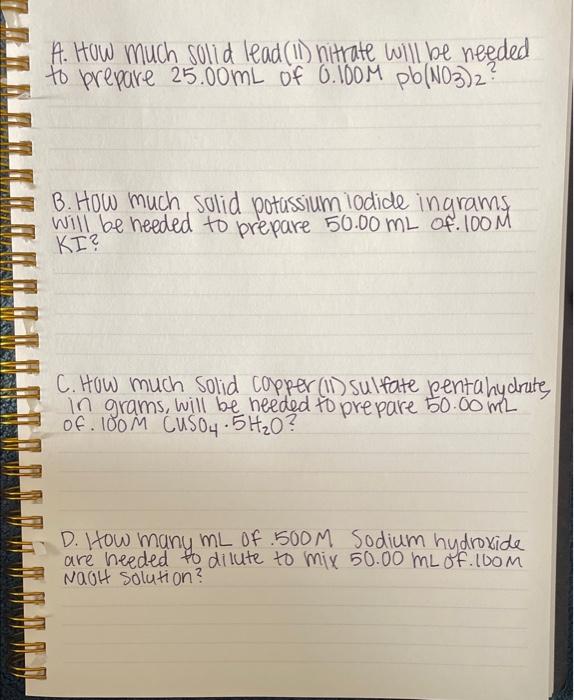 A. How much solid lead(11) nitrate will be needed
to prepare 25.00mL of 0.100M pb(NO3)2?
B. How much solid potassium iodide in grams,
will be needed to prepare 50.00 mL of .100M
KI?
C. How much solid copper (11) sulfate pentahydrate,
in grams, will be needed to prepare 50.00 mL
of .100M CuSO4 · 5H2O?
D. How many mL of .500M Sodium hydroxide
are needed to dilute to mix 50.00 mL of .100M
NaOH solution?